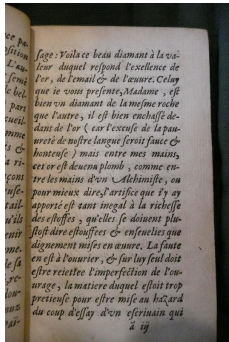 sage : Voila ce beau diamant à la va-
leur duquel respond l'exellence de
l'or, de l'email & de l'œuure. Celuy
que ie vous presente, Madame, est
bien vn diamant de la mesme roche
que l'autre, il est bien enchassé de-
dans de l'or (car l'excuse de la pau-
ureté de nostre langue seroit fauce &
honteuse) mais entre mes mains,
cet or est deuenu plomb, comme en-
tre les mains d'vn Alchimiste, ou
pour mieux dire, l'artifice que i'y ay
apporté est tant inegal à la richesse
des estoffes, qu'elles se doiuent plu-
stost dire estouffees & enseuelies que
dignement mises en œuure. La faute
en est à l'ouurier, & sur luy seul doit
estre reiettee l'imperfection de l'ou-
urage, la matiere duquel estoit trop
pretieuse pour estre mise au hazard
du coup d'essay d'vn escriuain qui
ã iij